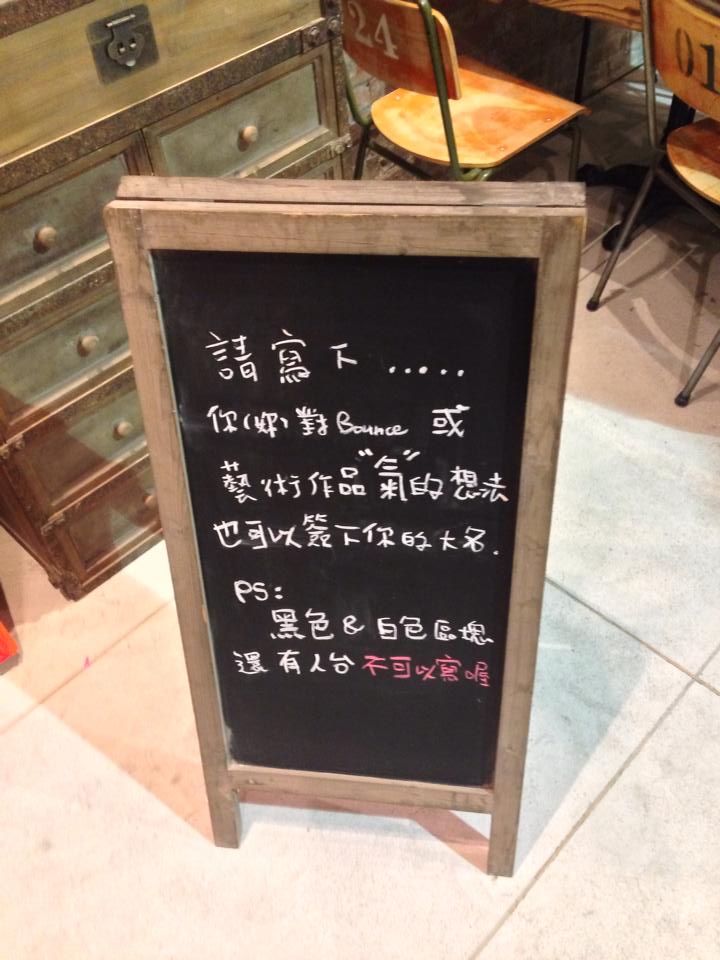 24
01
請寫下.....
你(妳)對Bounce 或
藝術作品"氣"的想法
也可以簽下你的大名.
PS:
黑色&白色區塊
還有人台不可以寫喔